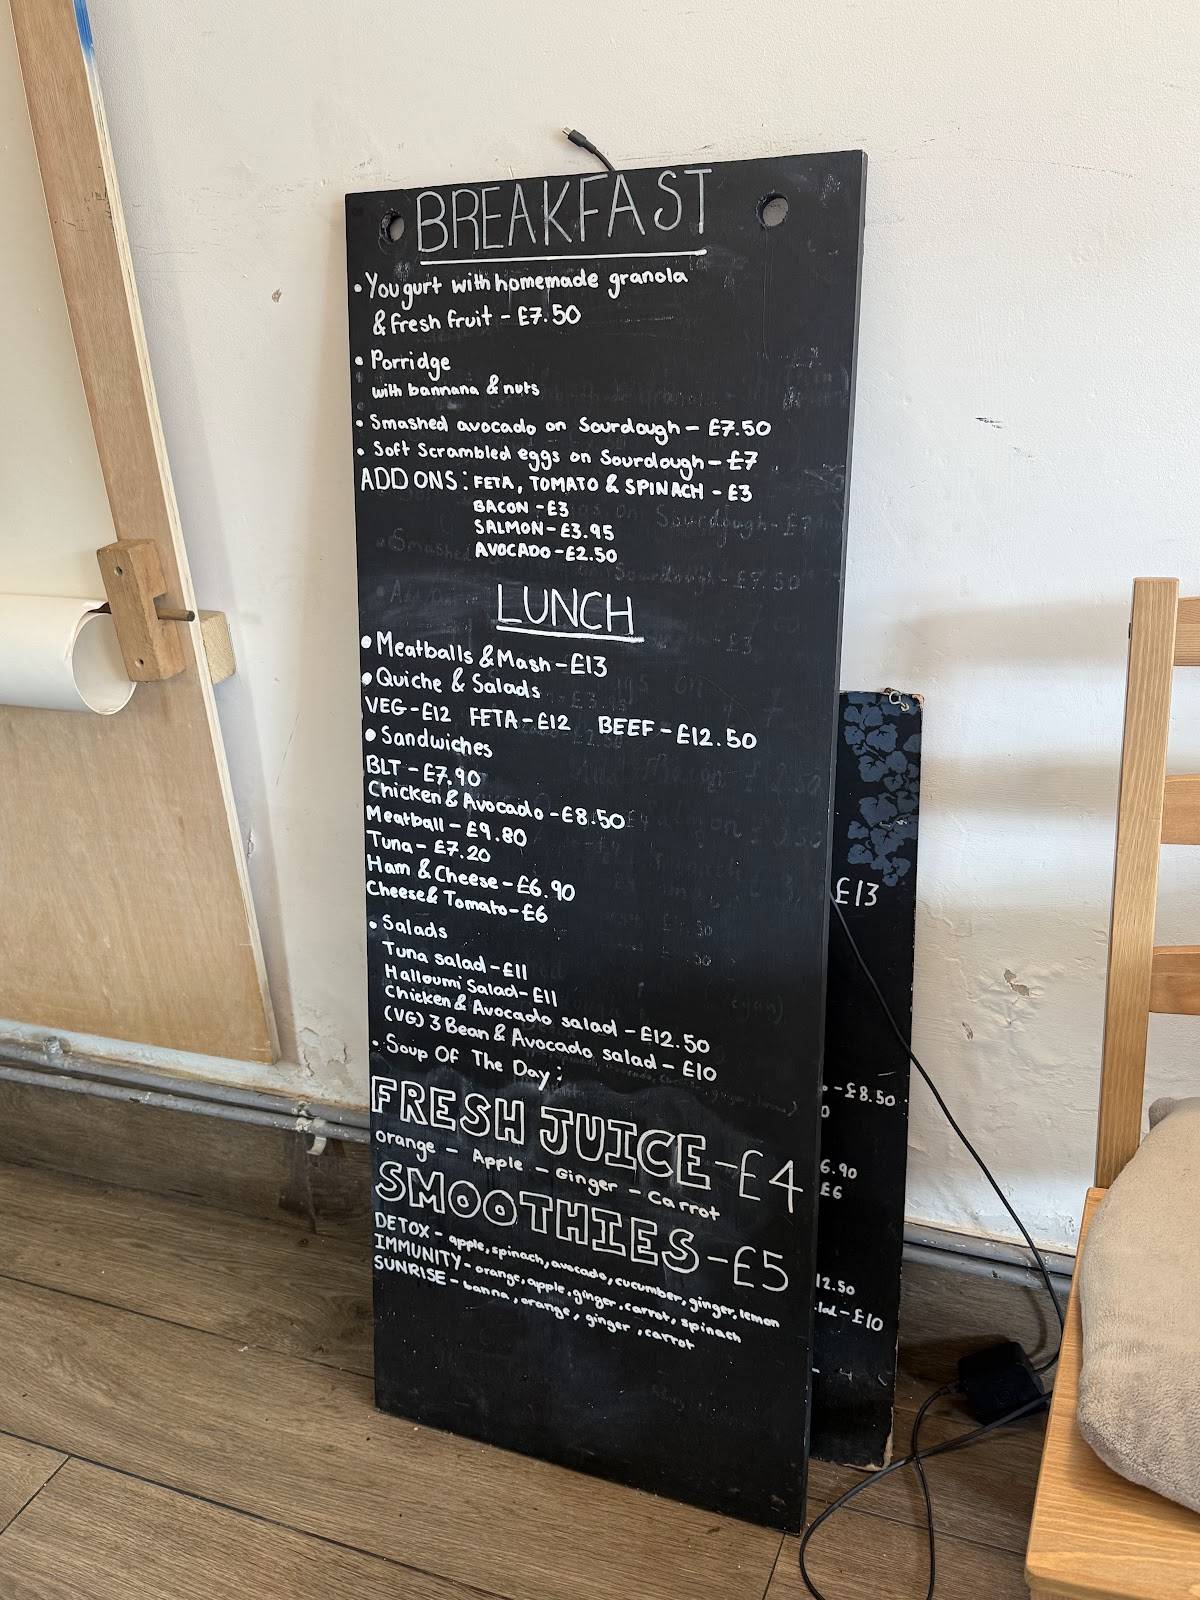 BREAKFAST
• Yougurt with homemade granola
& fresh fruit - £7.50
• Porridge
with bannana & nuts
• Smashed avocado on Sourdough - £7.50
• Soft Scrambled eggs on Sourdough - £7
ADD ONS: FETA, TOMATO & SPINACH - £3
BACON - £3
SALMON - £3.95
AVOCADO - £2.50
LUNCH
• Meatballs & Mash - £13
• Quiche & Salads
VEG - £12 FETA - £12 BEEF - £12.50
• Sandwiches
BLT - £7.90
Chicken & Avocado - £8.50
Meatball - £9.80
Tuna - £7.20
Ham & Cheese - £6.90
Cheese & Tomato - £6
• Salads
Tuna salad - £11
Halloumi Salad - £11
Chicken & Avocado salad - £12.50
(VG) 3 Bean & Avocado salad - £10
• Soup Of The Day:
FRESH JUICE - £4
orange - Apple - Ginger - Carrot
SMOOTHIES - £5
DETOX - apple, spinach, avocado, cucumber, ginger, lemon
IMMUNITY - orange, apple, ginger, carrot, spinach
SUNRISE - banna, orange, ginger, carrot
£13
- £8.50
6.90
£6
12.50
- £10